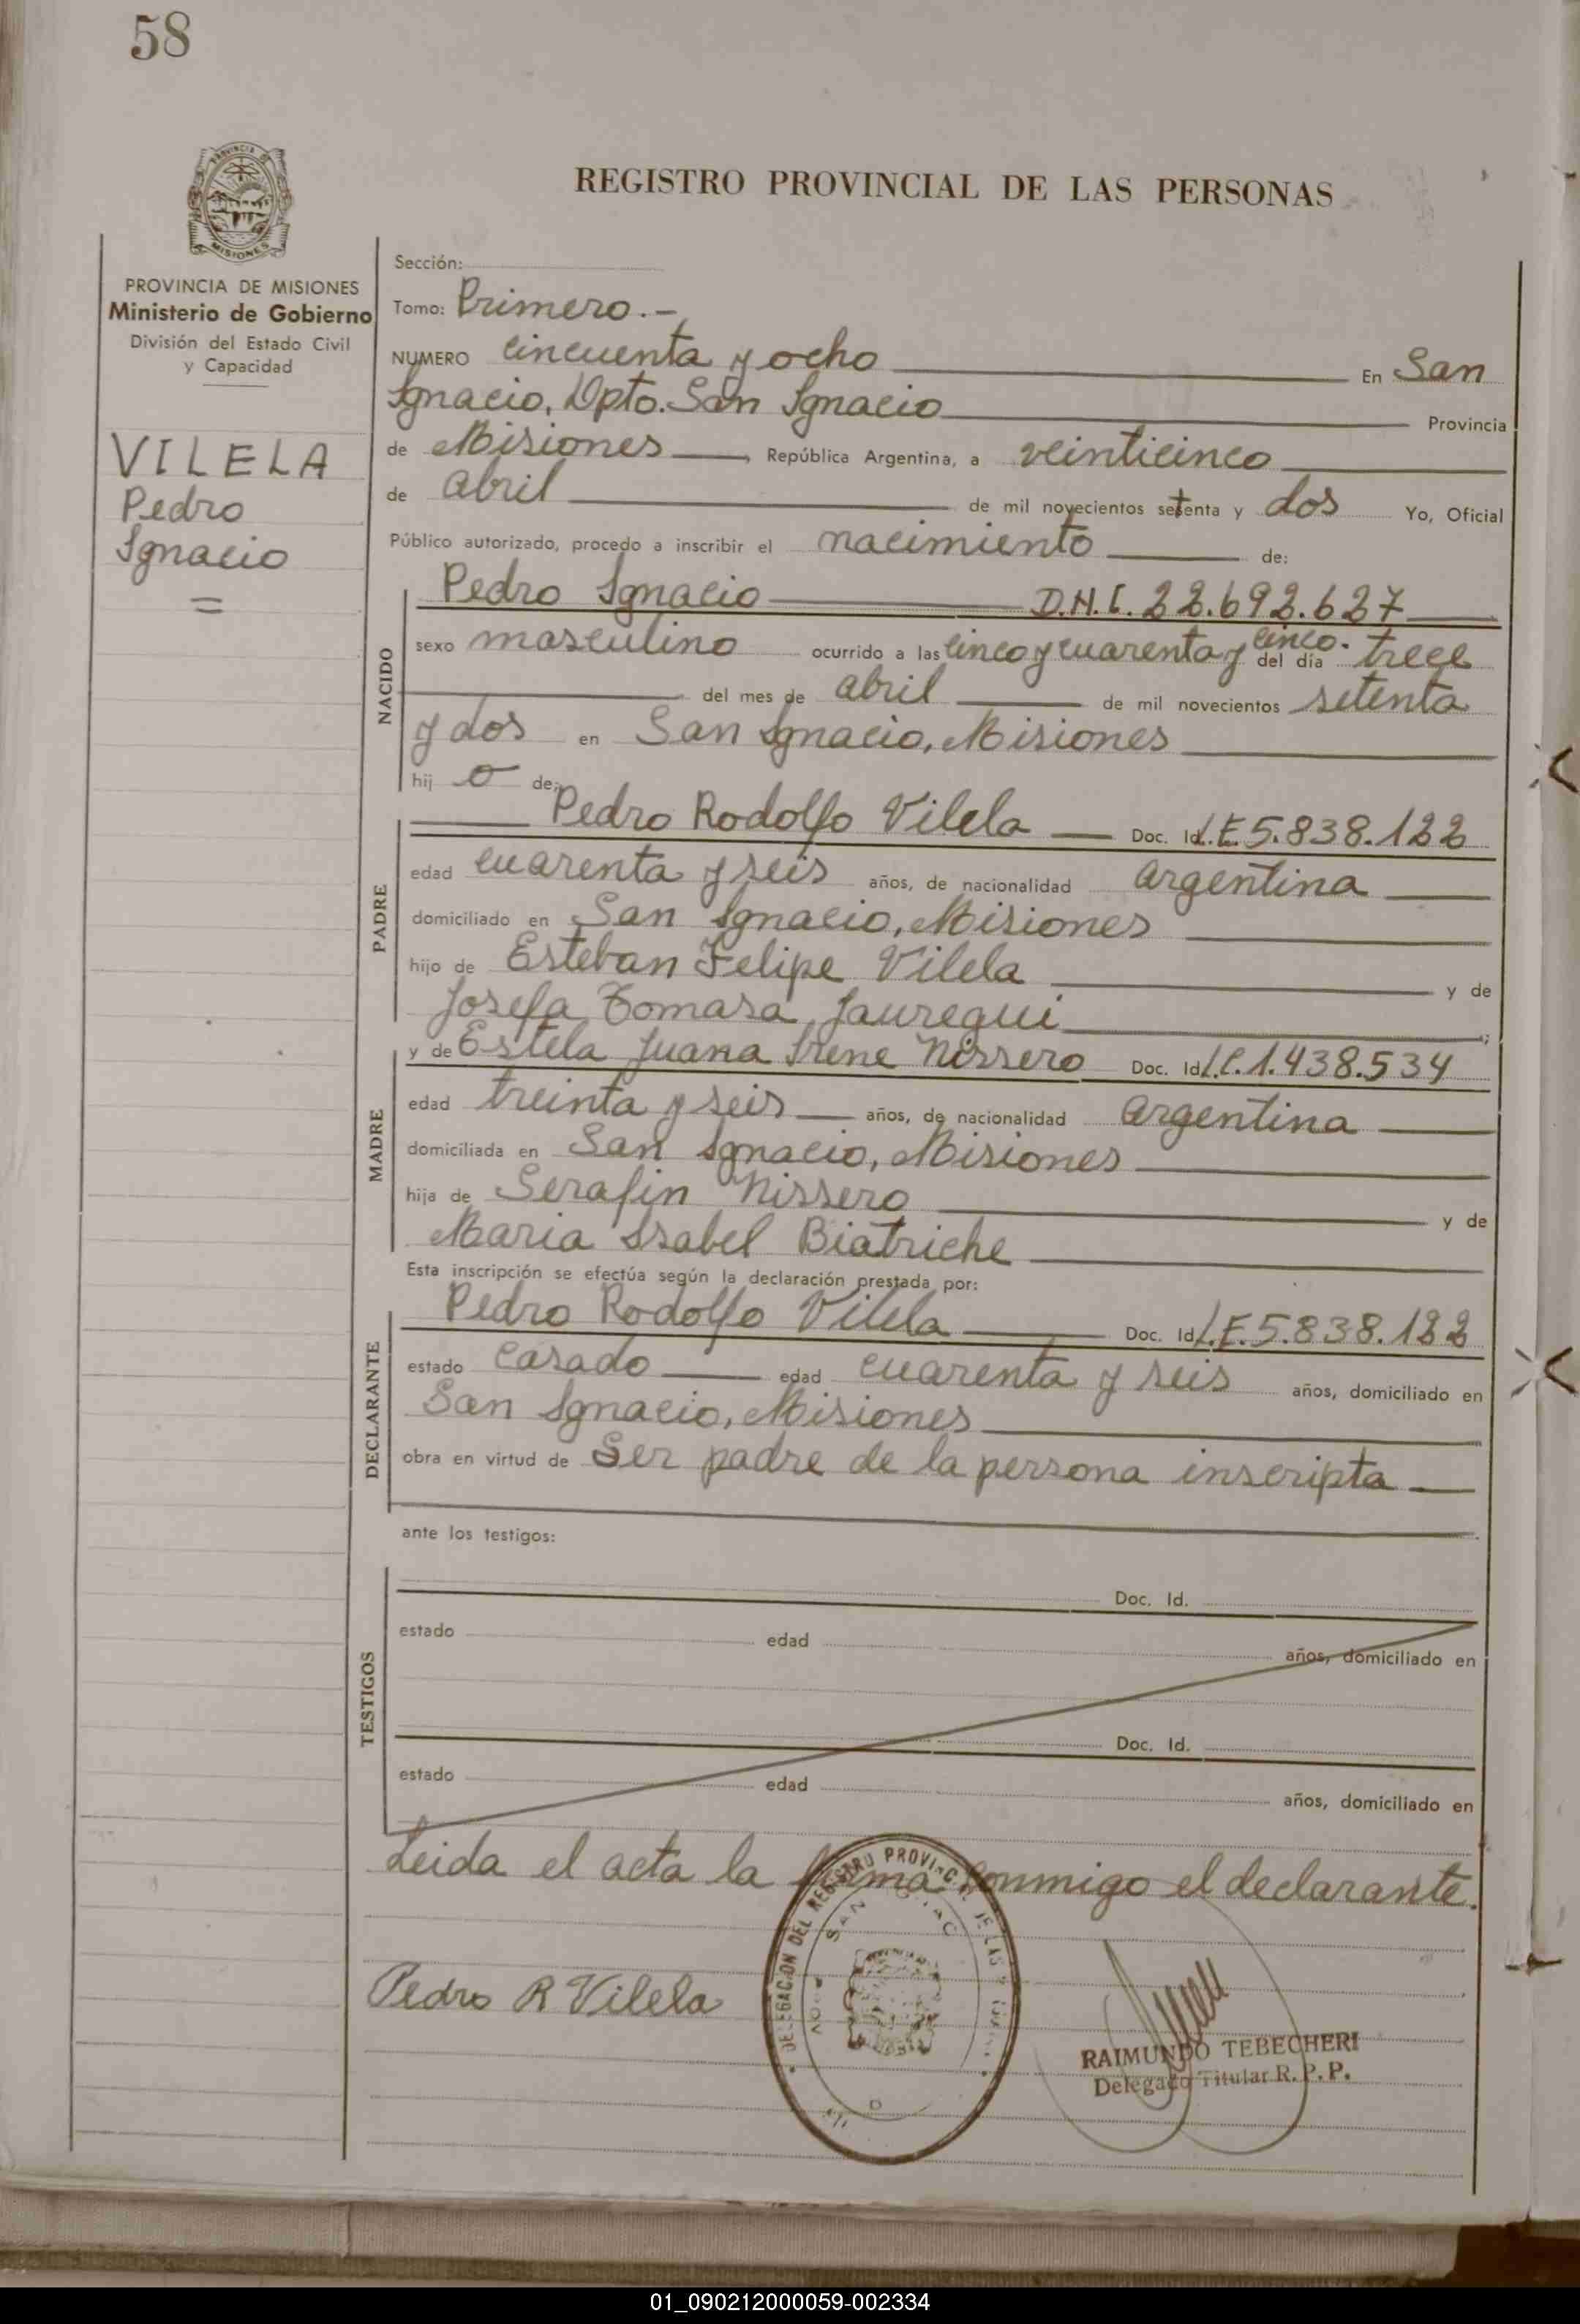 58
REGISTRO PROVINCIAL DE LAS PERSONAS
PROVINCIA DE
MISIONES
PROVINCIA DE MISIONES
Ministerio de Gobierno
División del Estado Civil
y Capacidad
VILELA
Pedro
Ignacio
=
Sección:
Tomo: Primero.-
NUMERO cincuenta y ocho En San
Ignacio, Dpto. San Ignacio Provincia
de Misiones, República Argentina, a veinticinco
de abril de mil novecientos setenta y dos Yo, Oficial
Público autorizado, procedo a inscribir el nacimiento de:
NACIDO
Pedro Ignacio D.N.I. 22.692.627
sexo masculino ocurrido a las cinco y cuarenta y cinco. del día trece
del mes de abril de mil novecientos setenta
y dos en San Ignacio, Misiones
hij o de:
PADRE
Pedro Rodolfo Vilela Doc. Id. L.E. 5.838.122
edad cuarenta y seis años, de nacionalidad argentina
domiciliado en San Ignacio, Misiones
hijo de Esteban Felipe Vilela y de
Josefa Tomasa Jauregui;
MADRE
y de Estela Juana Irene Nissero Doc. Id. L.C. 1.438.534
edad treinta y seis años, de nacionalidad argentina
domiciliada en San Ignacio, Misiones
hija de Serafin Nissero y de
Maria Isabel Biatriche
Esta inscripción se efectúa según la declaración prestada por:
DECLARANTE
Pedro Rodolfo Vilela Doc. Id. L.E. 5.838.122
estado casado edad cuarenta y seis años, domiciliado en
San Ignacio, Misiones
obra en virtud de ser padre de la persona inscripta
ante los testigos:
TESTIGOS
Doc. Id.
estado edad años, domiciliado en
Doc. Id.
estado edad años, domiciliado en
Leida el acta la firma conmigo el declarante.
DELEGACION DEL REGISTRO PROVINCIAL DE LAS
SAN IGNACIO
Pedro R Vilela
RAIMUNDO TEBECHERI
Delegado Titular R. P. P.
01_090212000059-002334